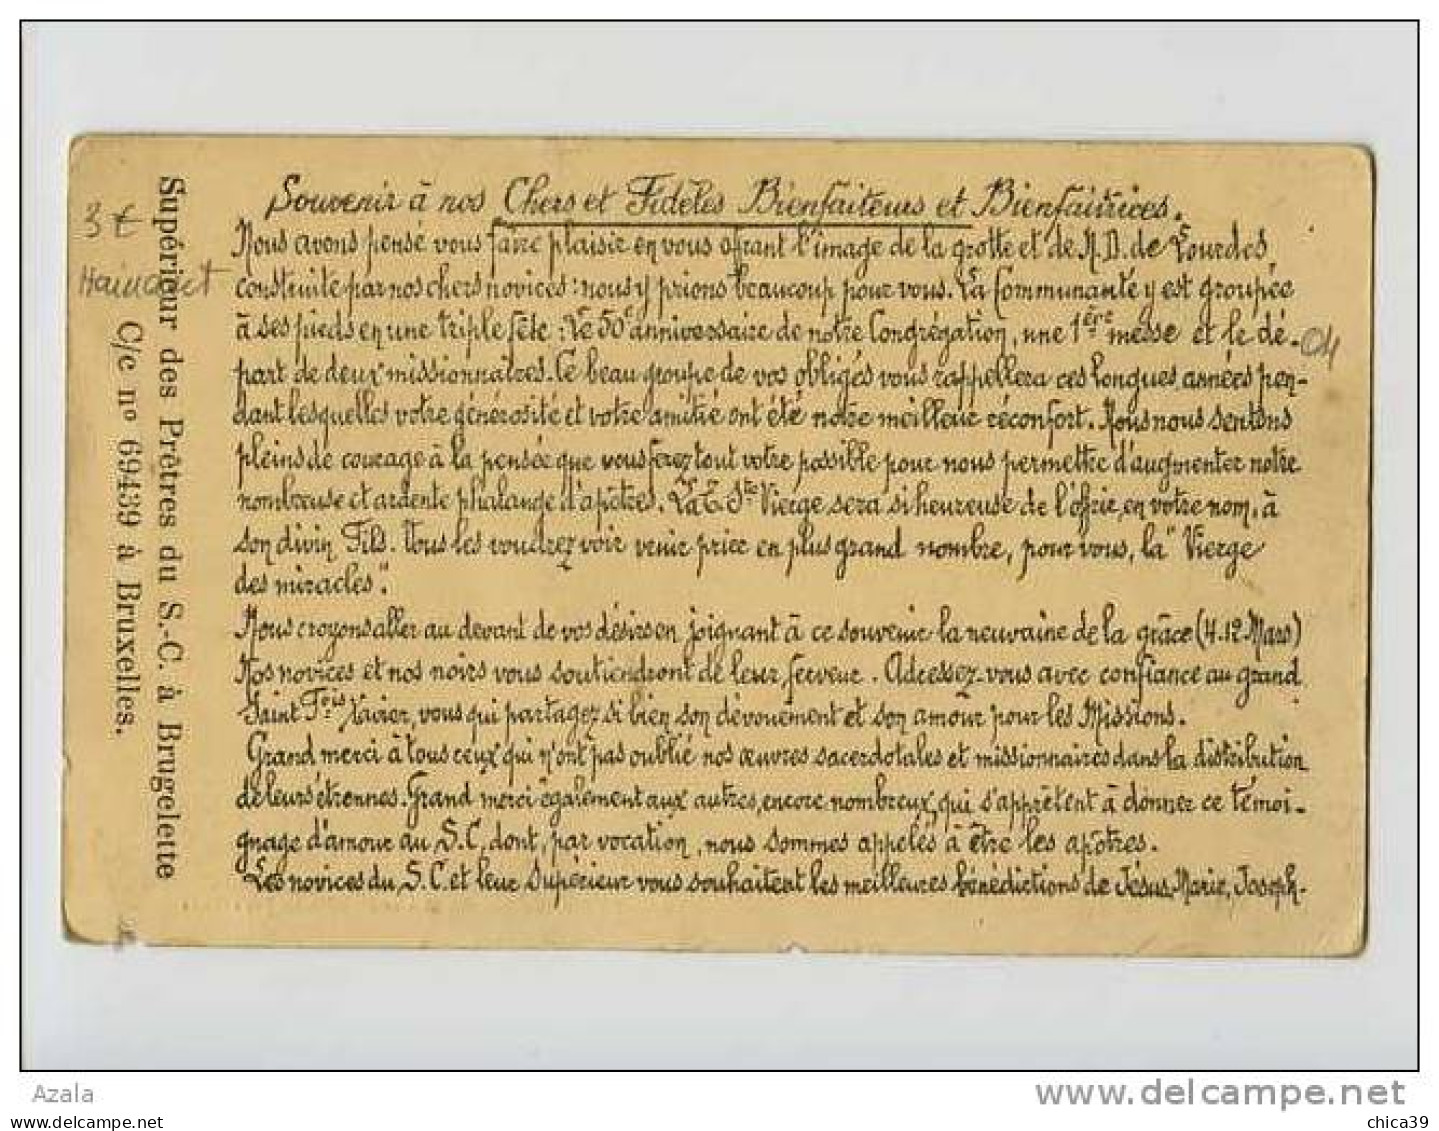 Souvenir à nos Chers et Fidèles Bienfaiteurs et Bienfaitrices.
Nous avons pensé vous faire plaisir en vous offrant l'image de la grotte et de N.D. de Lourdes,
construite par nos chers novices : nous y prions beaucoup pour vous. La Communauté y est groupée
à ses pieds en une triple fête : Le 50e anniversaire de notre Congrégation, une 1ère messe et le dé-
part de deux missionnaires. Ce beau groupe de vos obligés vous rappellera ces longues années pen-
dant lesquelles votre générosité et votre amitié ont été notre meilleur réconfort. Nous nous sentons
pleins de courage à la pensée que vous ferez tout votre possible pour nous permettre d'augmenter notre
nombreuse et ardente phalange d'apôtres. La T. Ste Vierge sera si heureuse de l'offrir, en votre nom, à
son divin Fils. Tous les voudrez voir venir prier en plus grand nombre, pour vous, la "Vierge
des miracles".
Nous croyons aller au devant de vos désirs en joignant à ce souvenir la neuvaine de la grâce (4-12 Mars)
Nos novices et nos noirs vous soutiendront de leur ferveur. Adressez-vous avec confiance au grand
Saint Frçis Xavier, vous qui partagez si bien son dévouement et son amour pour les Missions.
Grand merci à tous ceux qui n'ont pas oublié nos œuvres sacerdotales et missionnaires dans la distribution
de leurs étrennes. Grand merci également aux autres, encore nombreux, qui s'apprêtent à donner ce témoi-
gnage d'amour au S.C, dont, par vocation, nous sommes appelés à être les apôtres.
Les novices du S.C. et leur Supérieur vous souhaitent les meilleures bénédictions de Jésus, Marie, Joseph-
Supérieur des Prêtres du S.-C. à Brugelette
C/c n° 69439 à Bruxelles.
3 €
Hainaut
04
Azala
www.delcampe.net
chica39